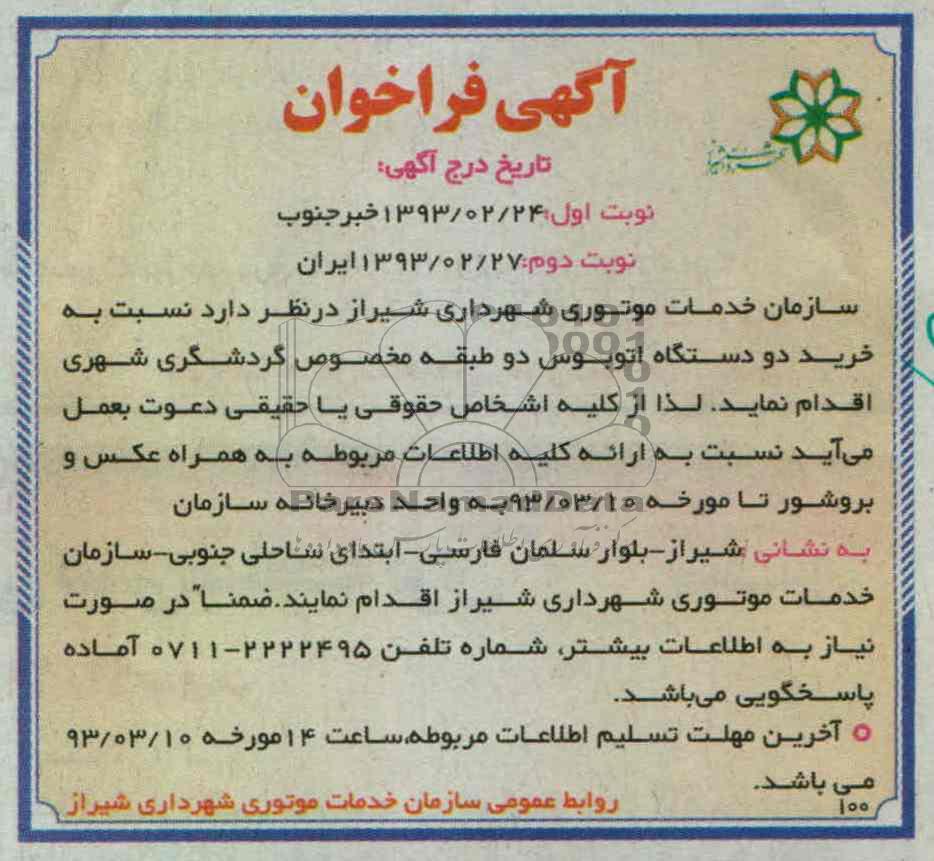 آگهی فراخوان
شهرداری شیراز
تاریخ درج آگهی:
نوبت اول:۱۳۹۳/۰۲/۲۴خبرجنوب
نوبت دوم:۱۳۹۳/۰۲/۲۷ایران
سازمان خدمات موتوری شهرداری شیراز درنظر دارد نسبت به
خرید دو دستگاه اتوبوس دو طبقه مخصوص گردشگری شهری
اقدام نماید. لذا از کلیه اشخاص حقوقی یا حقیقی دعوت بعمل
می‌آید نسبت به ارائه کلیه اطلاعات مربوطه به همراه عکس و
بروشور تا مورخه ۹۳/۰۳/۱۰به واحد دبیرخانه سازمان
ParsNamadData
به نشانی :شیراز-بلوار سلمان فارسی-ابتدای ساحلی جنوبی-سازمان
خدمات موتوری شهرداری شیراز اقدام نمایند.ضمنا"در صورت
نیاز به اطلاعات بیشتر، شماره تلفن ۲۲۲۲۴۹۵-۰۷۱۱ آماده
پاسخگویی می‌باشد.
آخرین مهلت تسلیم اطلاعات مربوطه،ساعت ۱۴مورخه ۹۳/۰۳/۱۰
می باشد.
۱۰۰
روابط عمومی سازمان خدمات موتوری شهرداری شیراز